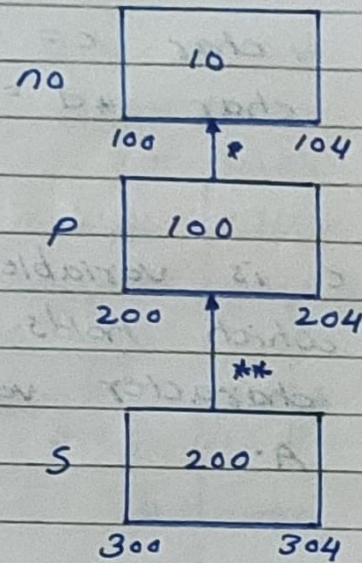 no 10
100 104
*
P 100
200 204
**
S 200
300 304